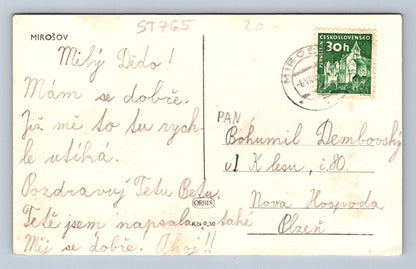 ST765
20.-
MIROŠOV
Milý Dědo!
Mám se dobře.
Již mě to tu rych-
le utíká.
Pozdravuj Tetu Betu.
Tetě jsem napsala také
Měj se dobře. Ahoj!!
ORBIS
Kčs 0,50
ČESKOSLOVENSKO
30h
MIROŠ
PAN
Bohumil Dembovský
ul K lesu, č.80.
Nova Hospoda
Plzeň